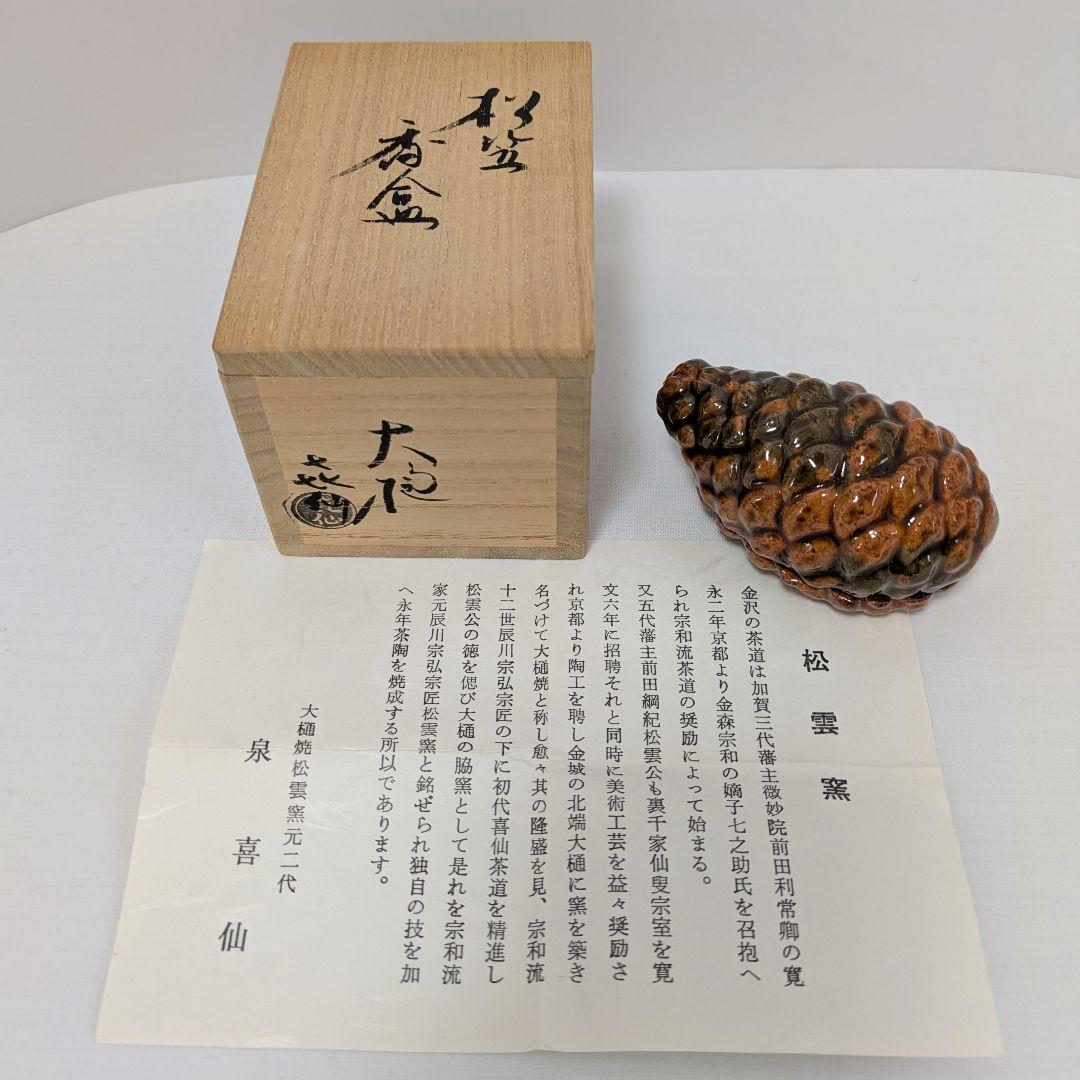 松笠
香盒
大樋
喜仙
松雲窯
金沢の茶道は加賀三代藩主微妙院前田利常卿の寛
永二年京都より金森宗和の嫡子七之助氏を召抱へ
られ宗和流茶道の奨励によって始まる。
又五代藩主前田綱紀松雲公も裏千家仙叟宗室を寛
文六年に招聘それと同時に美術工芸を益々奨励さ
れ京都より陶工を聘し金城の北端大樋に窯を築き
名づけて大樋焼と称し愈々其の隆盛を見、宗和流
十二世辰川宗弘宗匠の下に初代喜仙茶道を精進し
松雲公の徳を偲び大樋の脇窯として是れを宗和流
家元辰川宗弘宗匠松雲窯と銘ぜられ独自の技を加
へ永年茶陶を焼成する所以であります。
大樋焼松雲窯元二代
泉喜仙